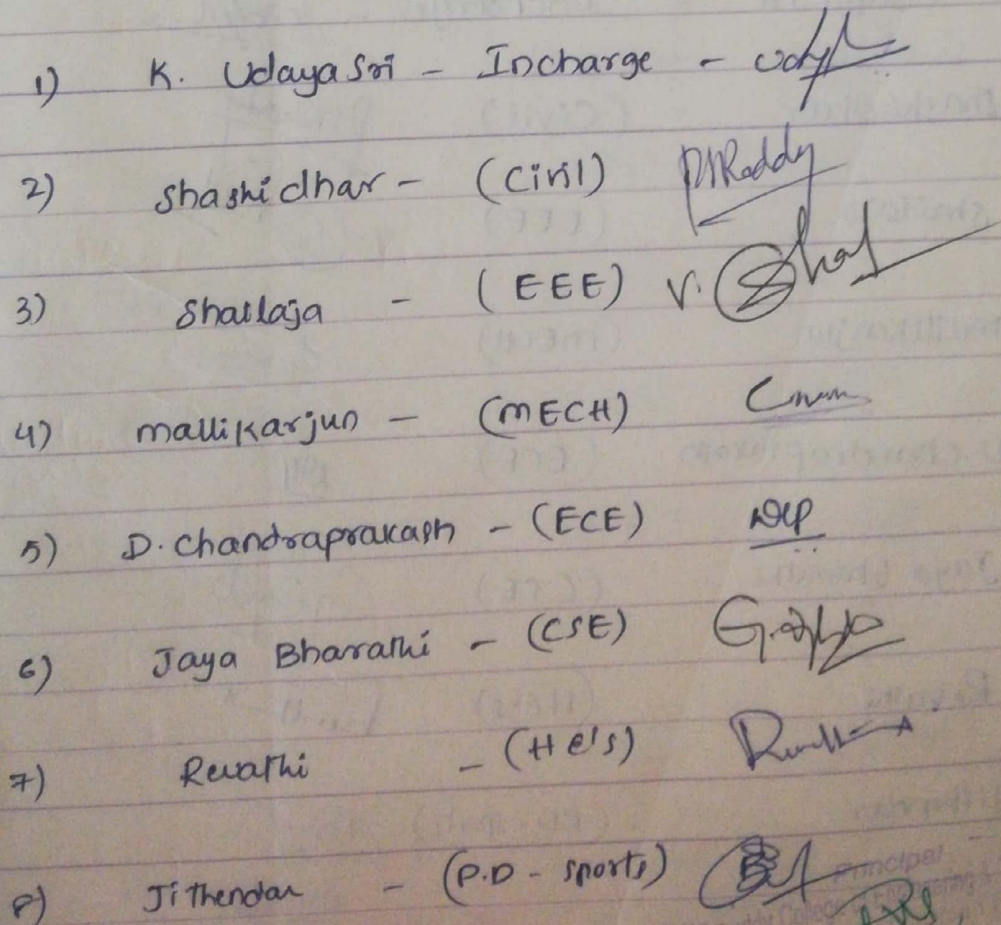 1) K. Udaya Sri - Incharge -
2) Shashidhar - (Civil) Reddy
3) Shailaja - (EEE) V.
4) mallikarjun - (MECH)
5) D. Chandraprakash - (ECE)
6) Jaya Bharathi - (CSE)
7) Revathi - (H&S)
8) Jithendar - (P.D - sports)
Principal
College of Engineering